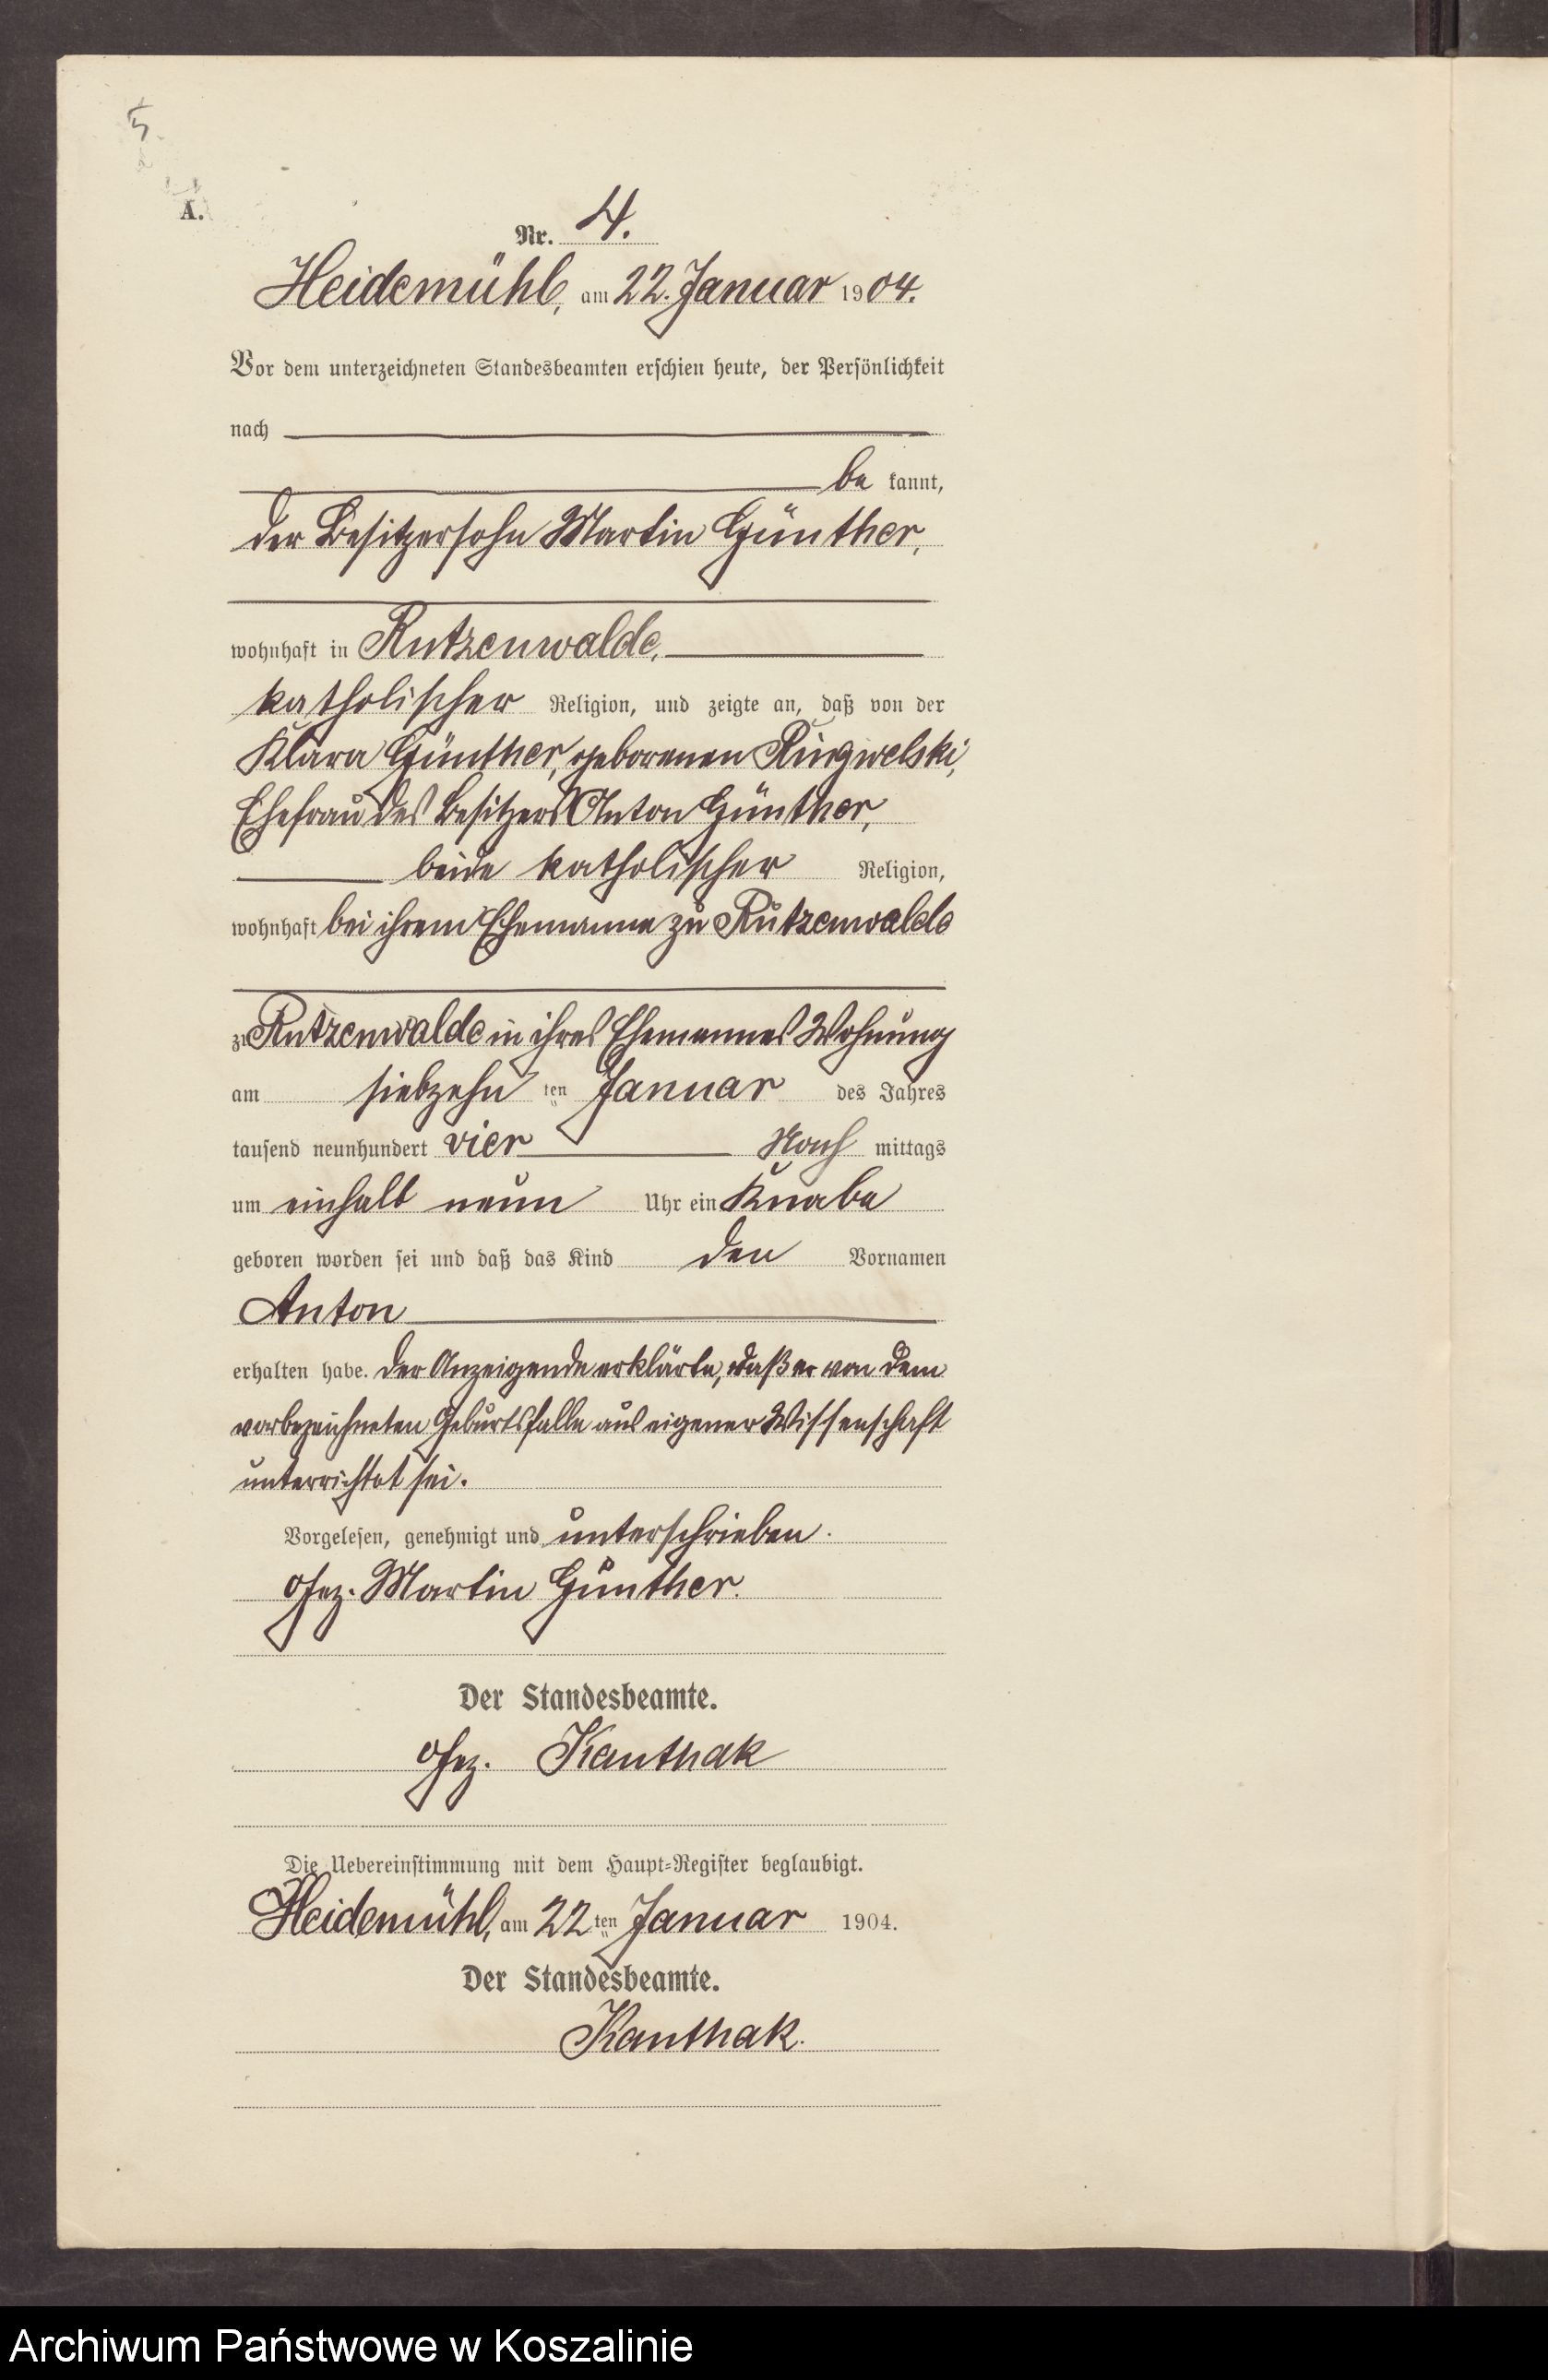 5
A.
Nr. 4.
Heidemühl, am 22. Januar 1904.
Vor dem unterzeichneten Standesbeamten erschien heute, der Persönlichkeit
nach
be kannt,
der Besitzersohn Martin Günther,
wohnhaft in Rutzenwalde,
katholischer Religion, und zeigte an, daß von der
Klara Günther, geborenen Ringwelski,
Ehefrau des Besitzers Anton Günther,
beide katholischer Religion,
wohnhaft bei ihrem Ehemanne zu Rutzenwalde
zu Rutzenwalde in ihres Ehemannes Wohnung
am siebzehn ten Januar des Jahres
tausend neunhundert vier Nach mittags
um einhalb neun Uhr ein Knabe
geboren worden sei und daß das Kind den Vornamen
Anton
erhalten habe. Der Anzeigende erklärte, daß er von dem
vorbezeichneten Geburtsfalle aus eigener Wissenschaft
unterrichtet sei.
Vorgelesen, genehmigt und unterschrieben.
gez. Martin Günther.
Der Standesbeamte.
gez. Kanthak
Die Uebereinstimmung mit dem Haupt-Register beglaubigt.
Heidemühl, am 22 ten Januar 1904.
Der Standesbeamte.
Kanthak.
Archiwum Państwowe w Koszalinie